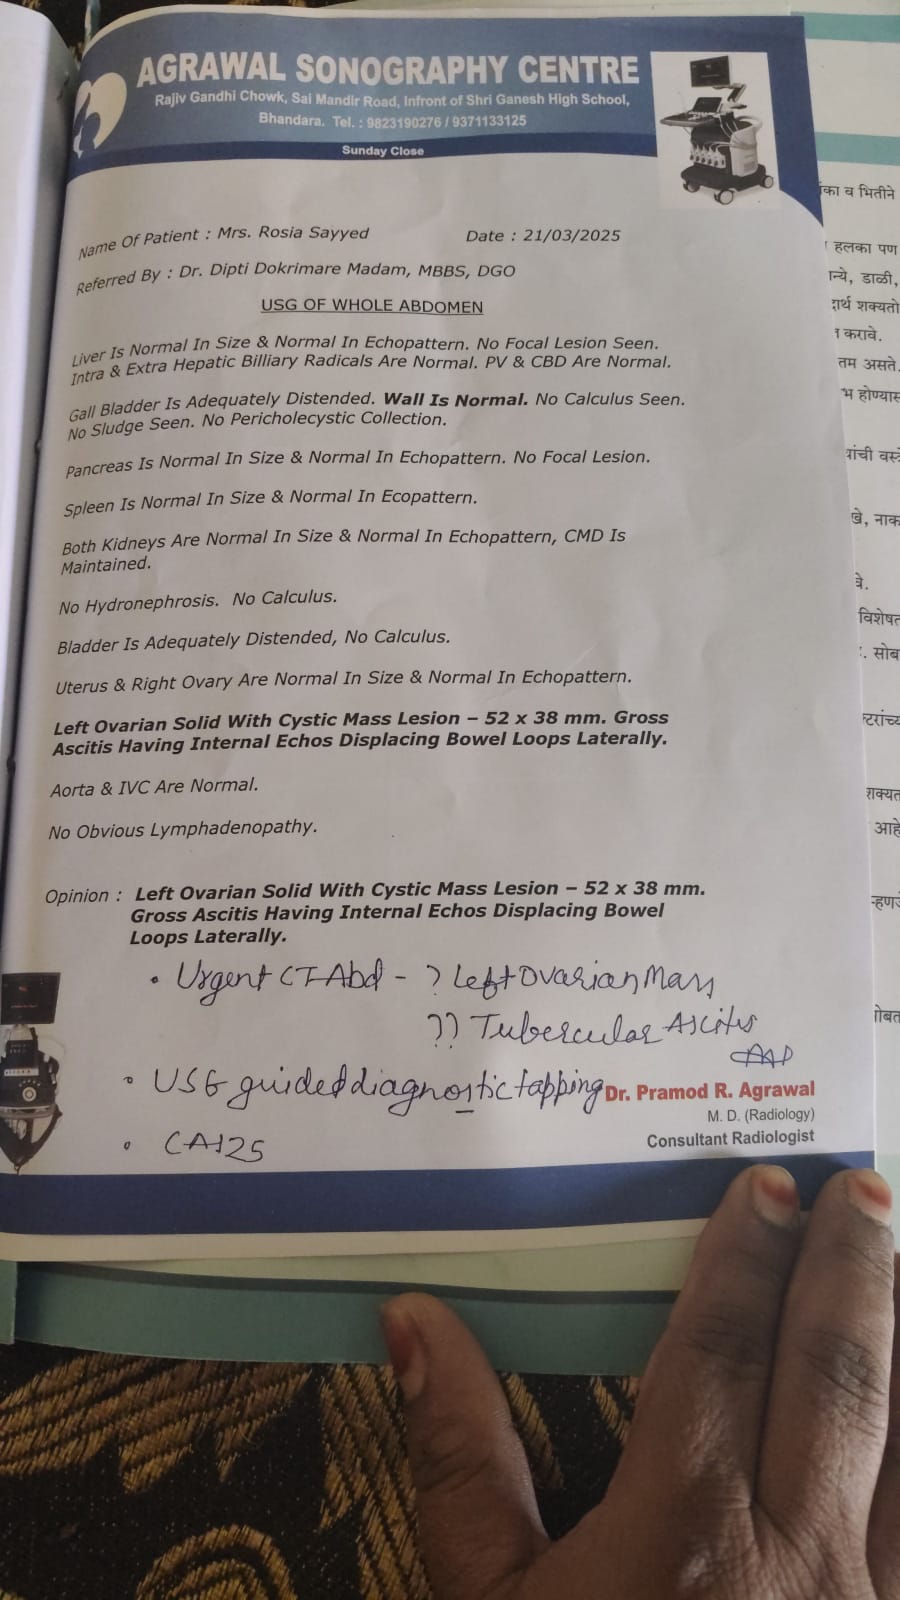 AGRAWAL SONOGRAPHY CENTRE
Rajiv Gandhi Chowk, Sai Mandir Road, Infront of Shri Ganesh High School,
Bhandara. Tel. : 9823190276 / 9371133125
Sunday Close
Name Of Patient : Mrs. Rosia Sayyed Date : 21/03/2025
Referred By : Dr. Dipti Dokrimare Madam, MBBS, DGO
USG OF WHOLE ABDOMEN
Liver Is Normal In Size & Normal In Echopattern. No Focal Lesion Seen.
Intra & Extra Hepatic Billiary Radicals Are Normal. PV & CBD Are Normal.
Gall Bladder Is Adequately Distended. Wall Is Normal. No Calculus Seen.
No Sludge Seen. No Pericholecystic Collection.
Pancreas Is Normal In Size & Normal In Echopattern. No Focal Lesion.
Spleen Is Normal In Size & Normal In Ecopattern.
Both Kidneys Are Normal In Size & Normal In Echopattern, CMD Is
Maintained.
No Hydronephrosis. No Calculus.
Bladder Is Adequately Distended, No Calculus.
Uterus & Right Ovary Are Normal In Size & Normal In Echopattern.
Left Ovarian Solid With Cystic Mass Lesion – 52 x 38 mm. Gross
Ascitis Having Internal Echos Displacing Bowel Loops Laterally.
Aorta & IVC Are Normal.
No Obvious Lymphadenopathy.
Opinion : Left Ovarian Solid With Cystic Mass Lesion – 52 x 38 mm.
Gross Ascitis Having Internal Echos Displacing Bowel
Loops Laterally.
• Urgent CT Abd - ? Left Ovarian Mass
?? Tubercular Ascites
• USG guided diagnostic tapping
Dr. Pramod R. Agrawal
M. D. (Radiology)
• CA125
Consultant Radiologist
व भितीने
हलका पण
डाळी,
शक्यतो
करावे.
असते.
होण्यास
वस्
नाक
विशेषत
सोब
शक्यत
आहे